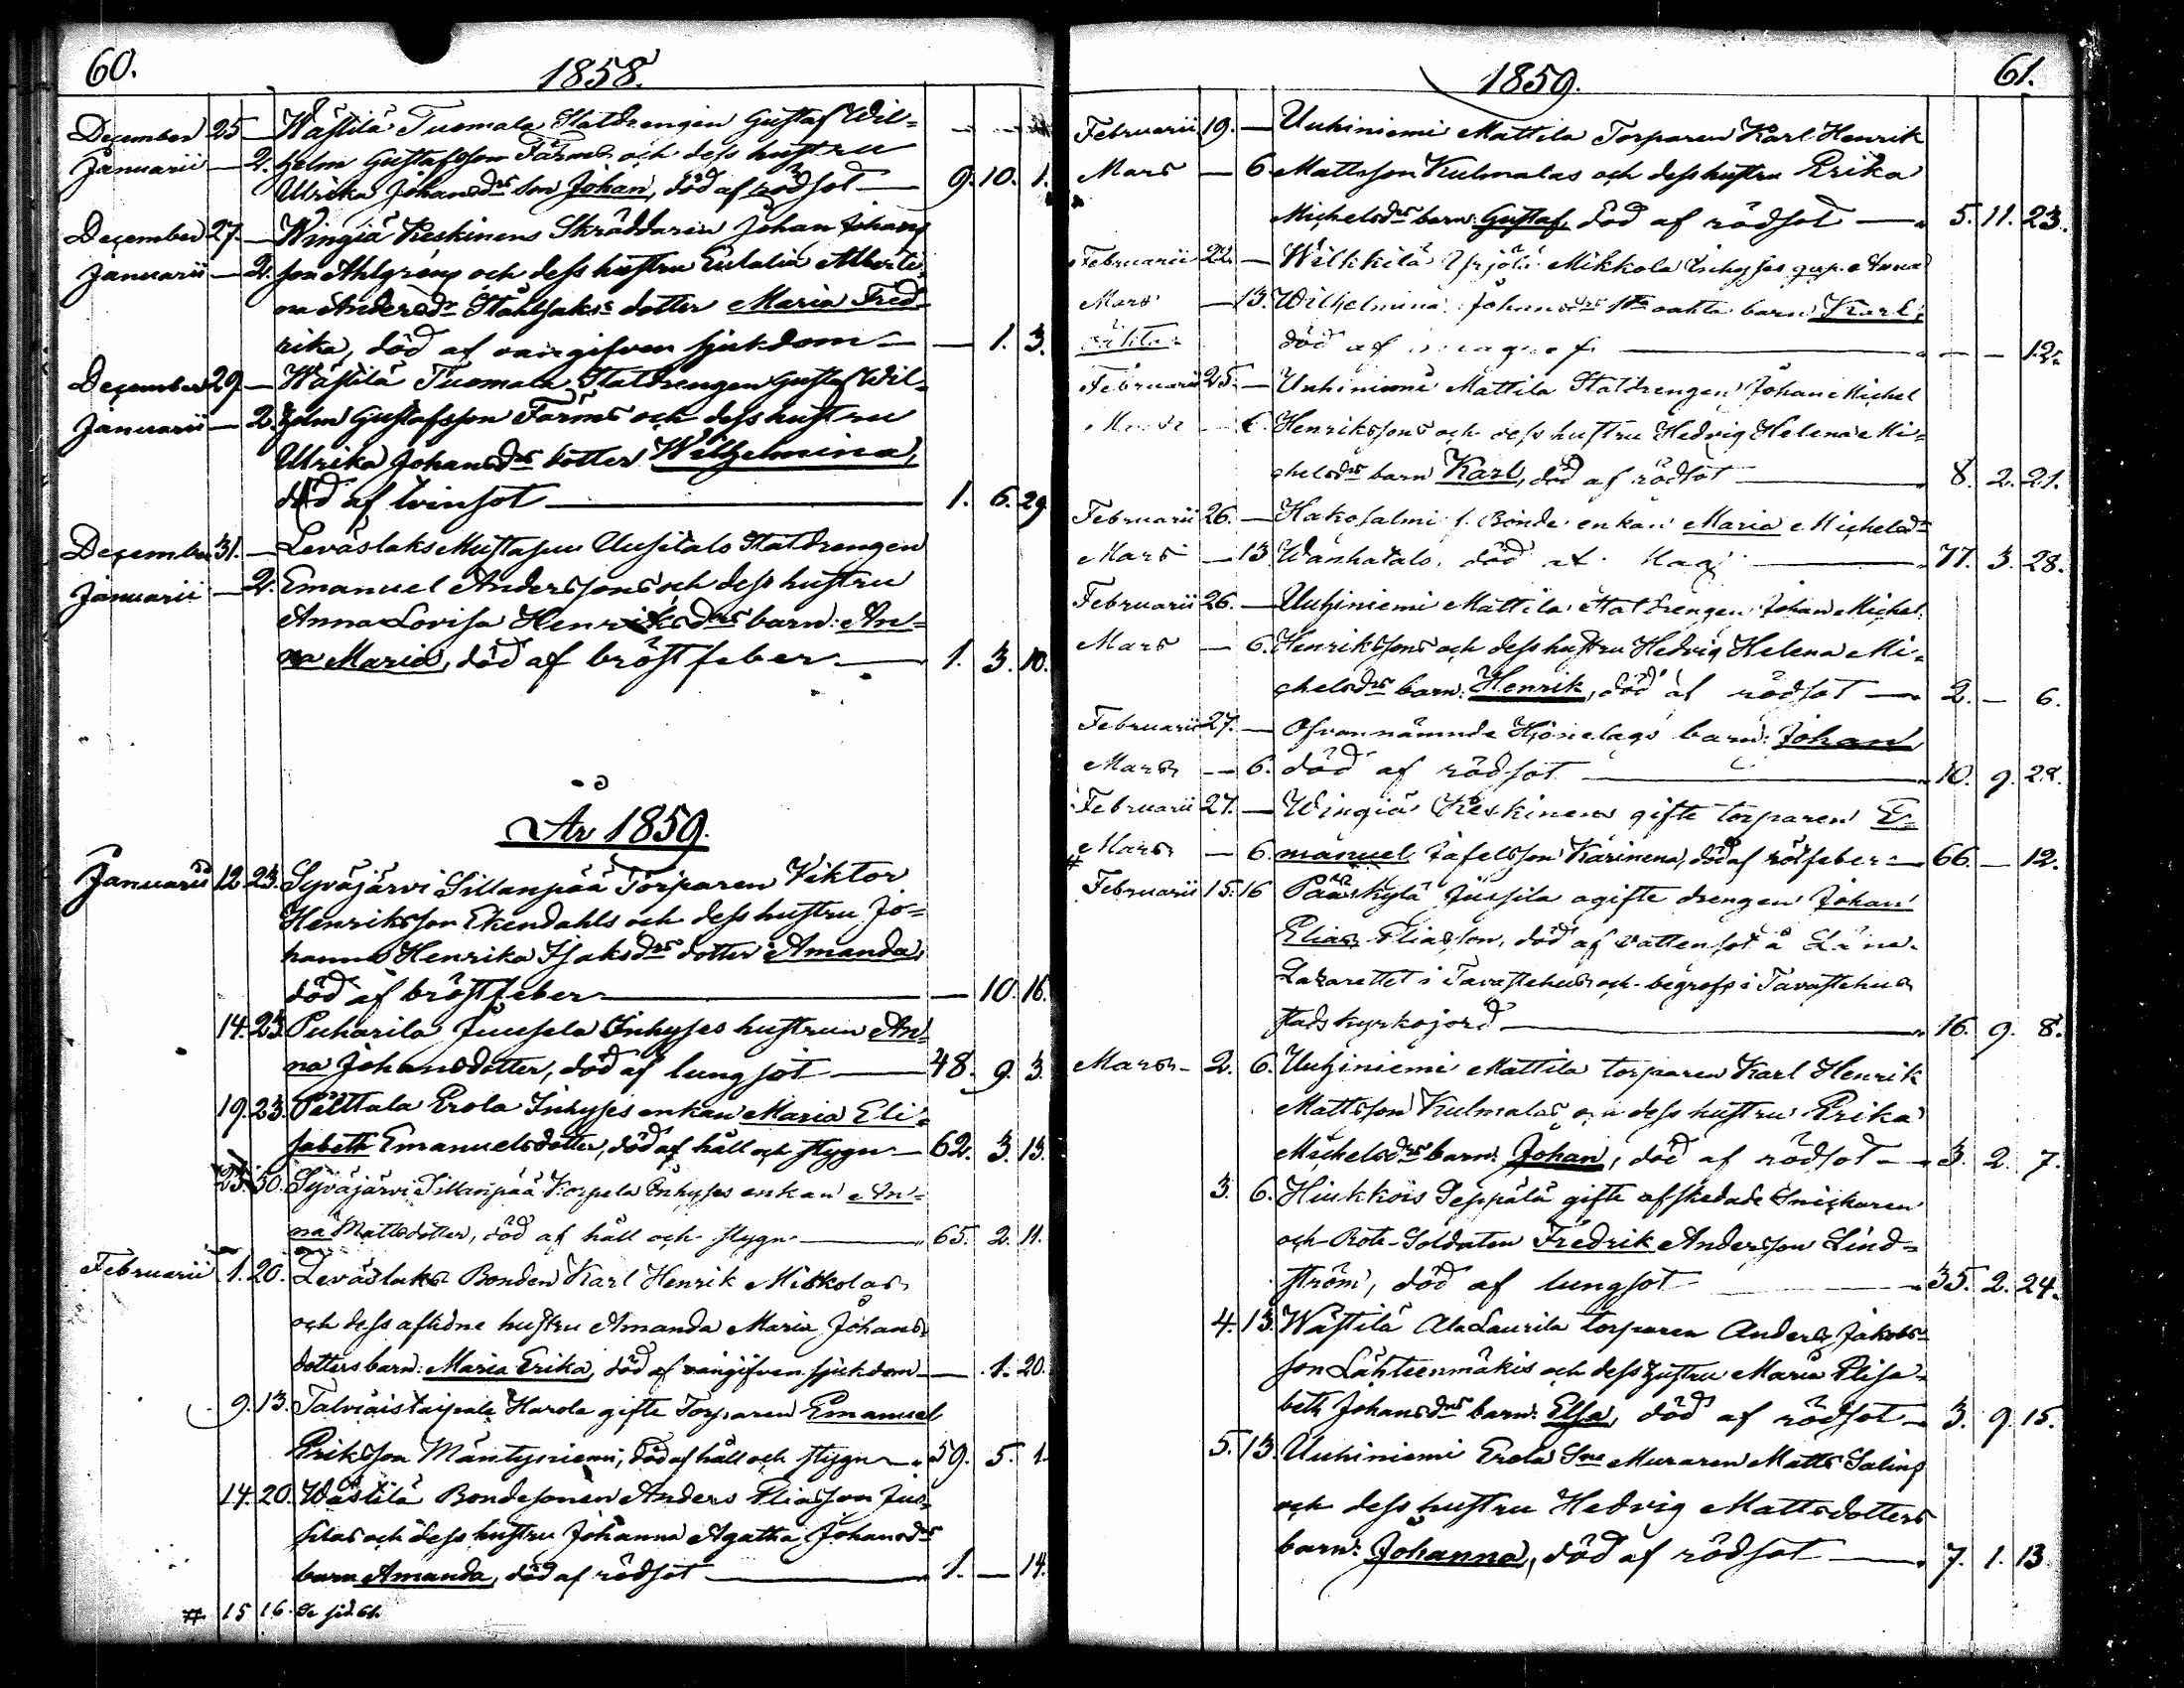 60.
1858.
December 25 — Wästilä Tuomala Statdrengen Gustaf Wil=
Januarii — 2. helm Gustafsson Färms och dess hustru
Ulrika Johansdrs son Johan, död af rödsot — 9. 10. 1.
December 27. — Wingiä Keskinens Skräddaren Johan Johans
Januarii — 2. son Ahlgrens och dess hustru Eulalia Alberti
na Andersdr Ståhlsaks dotter Maria Fred
rika, död af oangifven sjukdom — — 1. 3.
December 29. — Wästilä Tuomala Statdrengen Gustaf Wil=
Januarii — 2. helm Gustafsson Färms och dess hustru
Ulrika Johansdrs dotter Wilhelmina,
död af tvinsot — 1. 6. 29
December 31. — Leväslaks Mustapuu Uusitalo Statdrengen
Januarii — 2. Emanuel Anderssons och dess hustru
Anna Lovisa Henriksdrs barn: An=
na Maria, död af bröstfeber — 1. 3. 10.
År 1859.
Januarii 12 23. Syväjärvi Sillanpää Torparen Viktor
Henriksson Ekendahls och dess hustru Jo=
hanna Henrika Isaksdrs dotter Amanda,
död af bröstfeber — — 10. 16.
14. 23. Puharila Juusela Inhyses hustrun An=
na Johansdotter, död af lungsot — 48. 9. 3.
19. 23. Pälttala Erola Inhyses enkan Maria Eli=
sabeth Emanuelsdotter, död af håll och stygn — 62. 3. 13.
23. 30. Syväjärvi Sillanpää Korpela Inhyses enkan An=
na Mattsdotter, död af håll och stygn — 65. 2. 11.
Februarii 1. 20. Leväslaks Bonden Karl Henrik Mikkolas
och dess aflidne hustru Amanda Maria Johans
dotters barn: Maria Erika, död af oangifven sjukdom — — 1. 20.
9. 13. Talviais Taipale Harola gifte Torparen Emanuel
Eriksson Mäntyniemi, död af håll och stygn — 59. 5. 1.
14. 20. Wästilä Bondesonen Anders Eliasson Jus=
silas och dess hustru Johanna Agatha Johansdrs
barn Amanda, död af rödsot — 1. — 14.
# 15 16. Se sid. 61.
1859.
61.
Februarii 19. — Uuhiniemi Mattila Torparen Karl Henrik
Mars — 6. Mattsson Kulmalas och dess hustru Erika
Michelsdrs barn: Gustaf, död af rödsot — 5. 11. 23.
Februarii 22. — Wilkkilä Yrjölä Mikkola Inhyses Anna
Mars — 13. Wilhelmina Johansdrs oäkta barn Karl,
oäkta
död af — — — 12.
Februarii 25. — Uuhiniemi Mattila Statdrengen Johan Michel
Mars — 6. Henrikssons och dess hustru Hedvig Helena Mi=
chelsdrs barn Karl, död af rödsot — 8. 2. 21.
Februarii 26. — Hakosalmi f. Bonde enkan Maria Michelsdr
Mars — 13 Wanhatalo, död af — 77. 3. 28.
Februarii 26. — Uuhiniemi Mattila Statdrengen Johan Michel
Mars — 6. Henrikssons och dess hustru Hedvig Helena Mi=
chelsdrs barn: Henrik, död af rödsot — 2. — 6.
Februarii 27. — Ofvannämnde Hjonelags barn: Johan
Mars — 6. död af rödsot — 10. 9. 22.
Februarii 27. — Wingiä Keskinens gifte torparen E=
# Mars — 6. manuel Karinena, död af rötfeber — 66. — 12.
Februarii 15. 16 Pääskylä Jussila ogifte drengen Johan
Elias Eliasson, död af vattensot å Läns
Lazarettet i Tavastehus och begrafs i Tavastehus
stads kyrkojord — 16. 9. 8.
Mars — 2. 6. Uuhiniemi Mattila torparen Karl Henrik
Mattsson Kulmalas och dess hustru Erika
Michelsdrs barn: Johan, död af rödsot — 3. 2. 7.
3. 6. Hiukkois Seppälä gifte afskedade Snickaren
och Rote-Soldaten Fredrik Andersson Lind=
ström, död af lungsot — 35. 2. 24.
4. 13. Wästilä Ala Laurila torparen Anders Jakobs
son Lähteenmäkis och dess hustru Maria Elisa=
beth Johansdrs barn: Elsa, död af rödsot — 3. 9. 15.
5. 13. Uuhiniemi Erola Sne Muraren Matts Salins
och dess hustru Hedvig Mattsdotters
barn: Johanna, död af rödsot — 7. 1. 13.